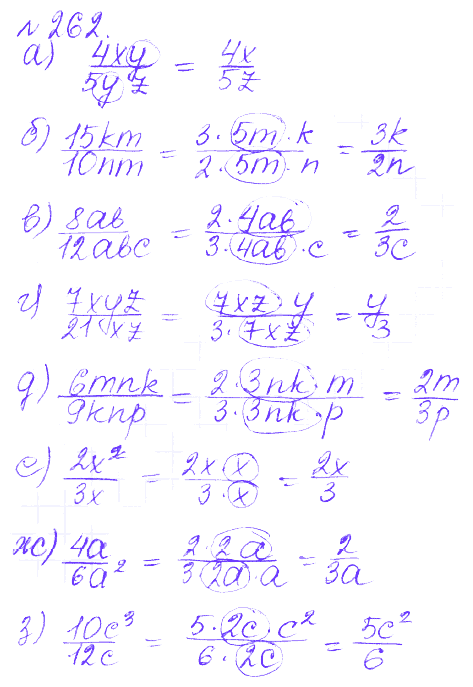 №262.
а) 4xy/5yz = 4x/5z
б) 15km/10nm = 3·5m·k/2·5m·n = 3k/2n
в) 8ab/12abc = 2·4ab/3·4ab·c = 2/3c
г) 7xyz/21xz = 7xz·y/3·7xz = y/3
д) 6mnk/9knp = 2·3nk·m/3·3nk·p = 2m/3p
е) 2x²/3x = 2x·x/3·x = 2x/3
ж) 4a/6a² = 2·2a/3·2a·a = 2/3a
з) 10c³/12c = 5·2c·c²/6·2c = 5c²/6